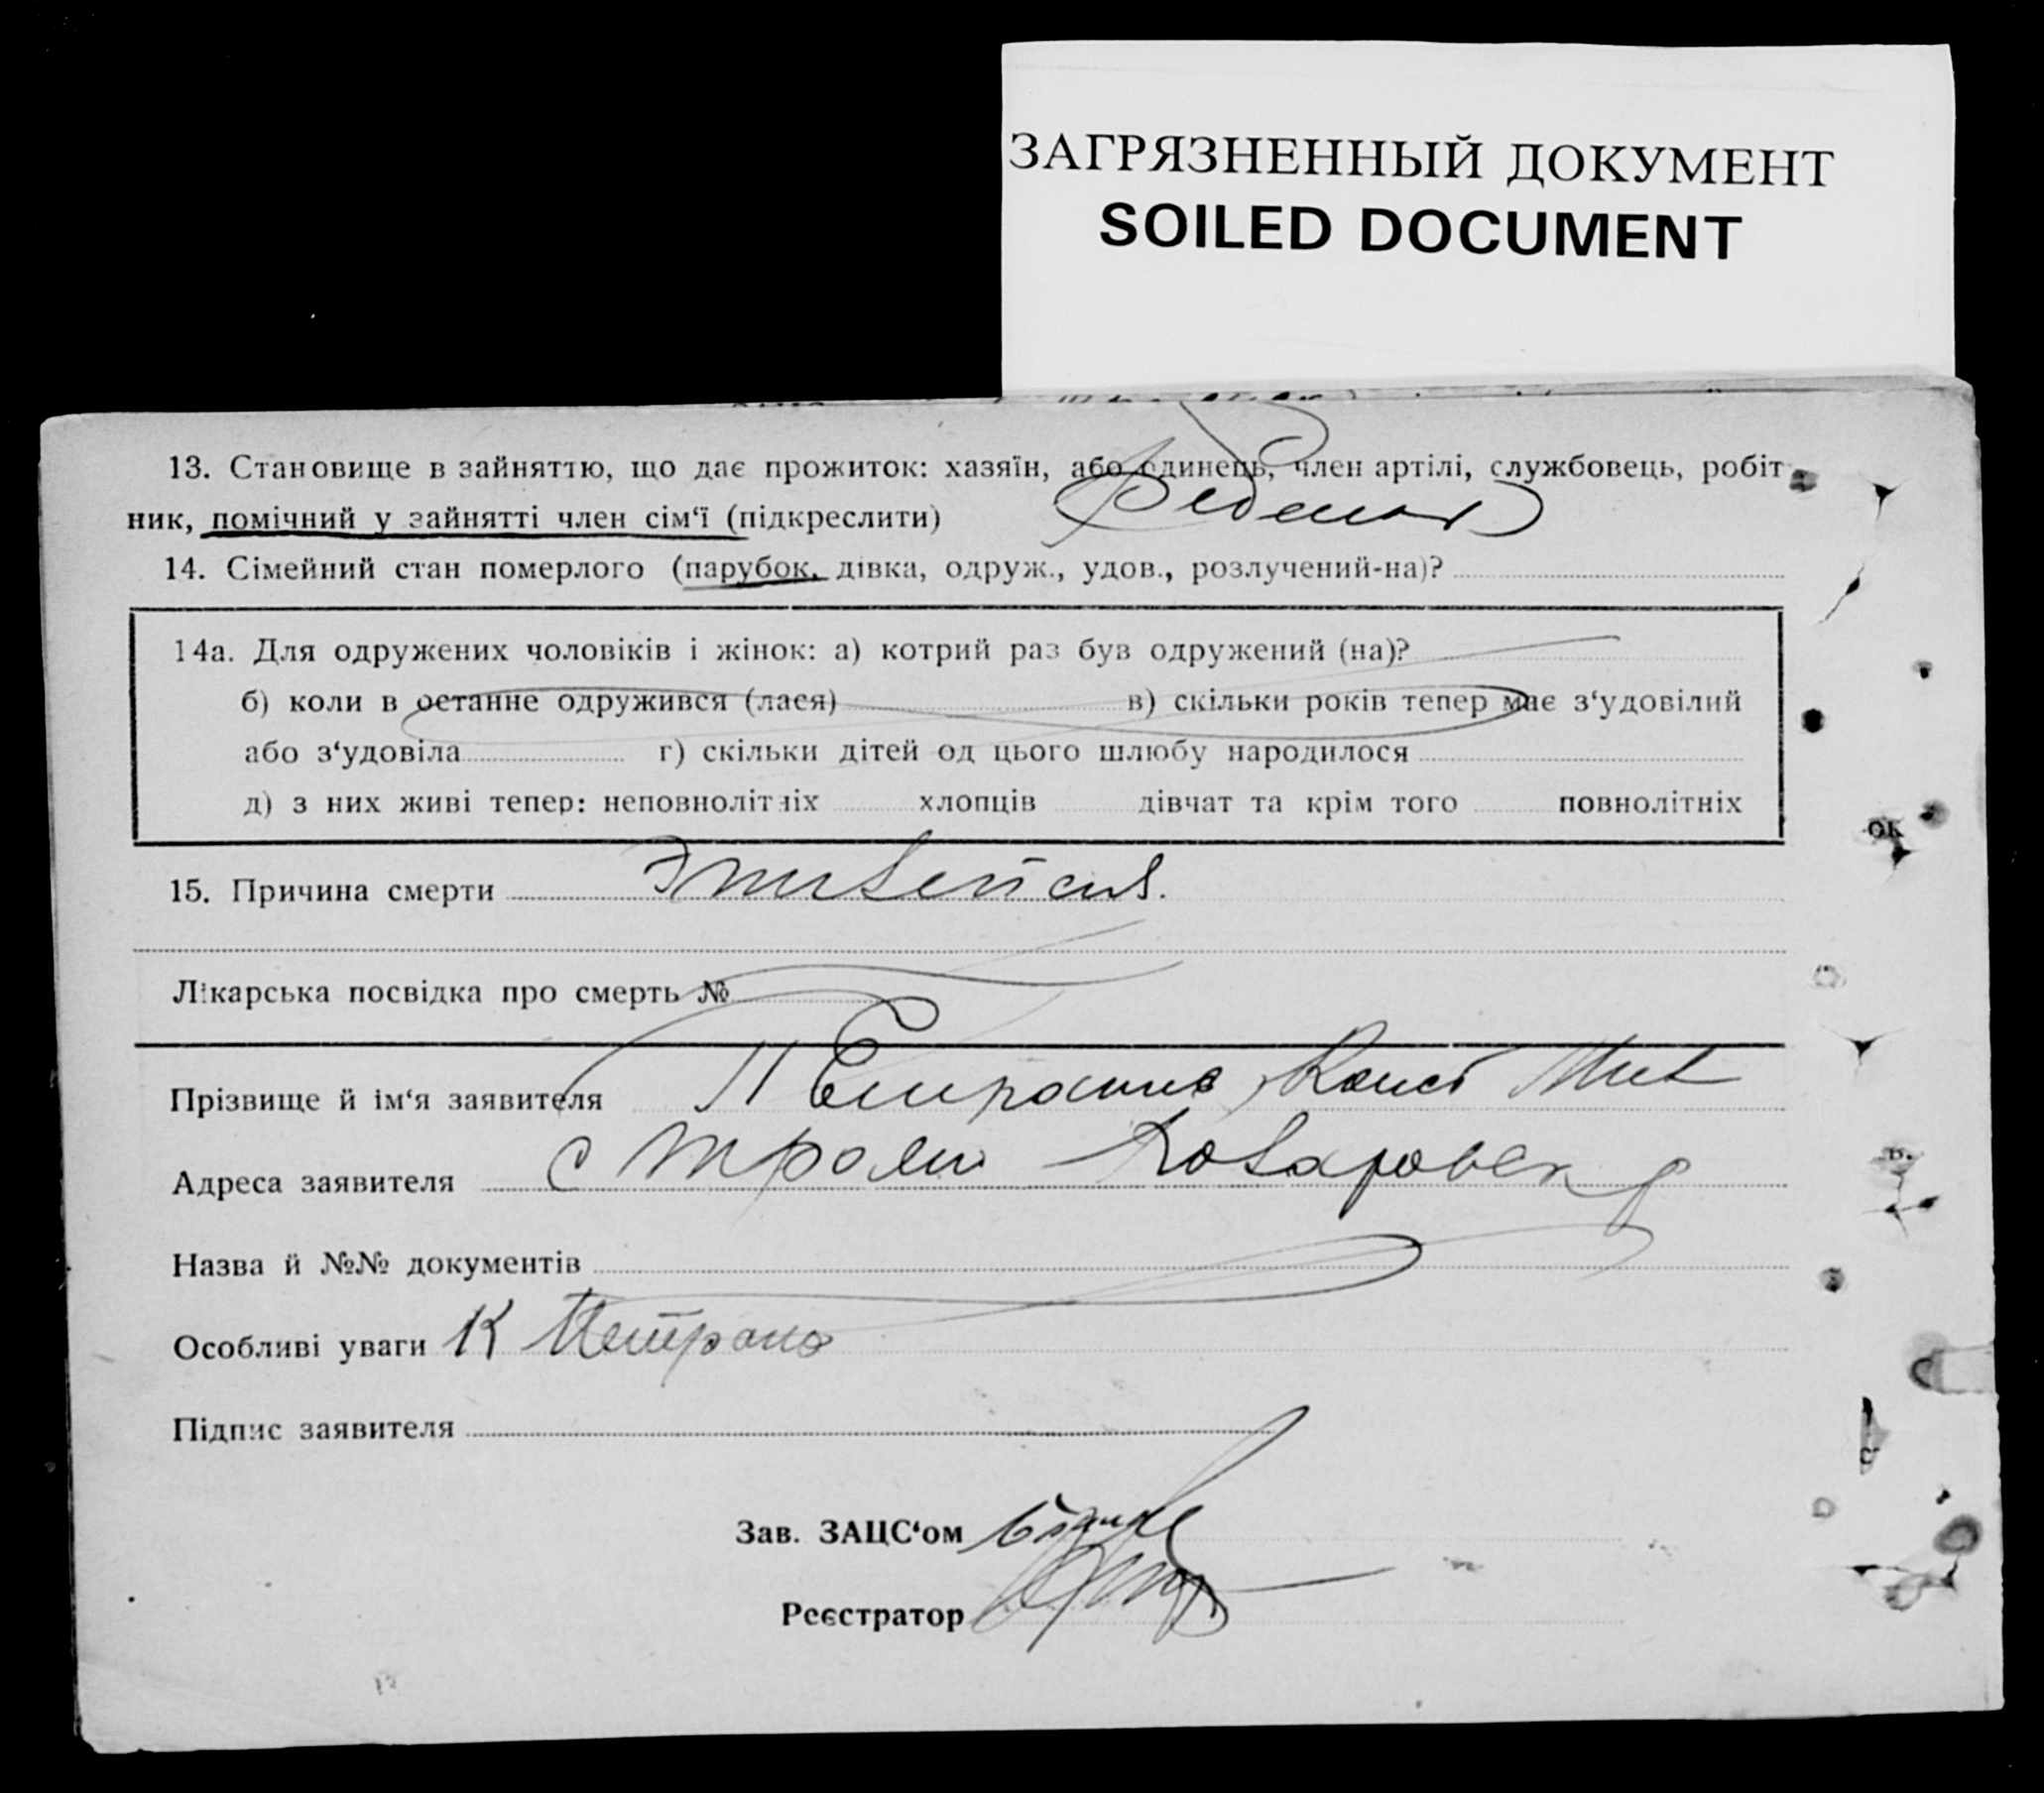 ЗАГРЯЗНЕННЫЙ ДОКУМЕНТ
SOILED DOCUMENT
13. Становище в зайняттю, що дає прожиток: хазяїн, або одинець, член артілі, службовець, робіт
ник, помічний у зайнятті член сім‘ї (підкреслити)
14. Сімейний стан померлого (парубок, дівка, одруж., удов., розлучений-на)?
14а. Для одружених чоловіків і жінок: а) котрий раз був одружений (на)?
б) коли в останне одружився (лася) в) скільки років тепер має з‘удовілий
або з‘удовіла г) скільки дітей од цього шлюбу народилося
д) з них живі тепер: неповнолітніх хлопців дівчат та крім того повнолітніх
15. Причина смерти
Лікарська посвідка про смерть №
Прізвище й ім‘я заявителя
Адреса заявителя
Назва й №№ документів
Особливі уваги К
Підпис заявителя
Зав. ЗАЦС‘ом
Реєстратор